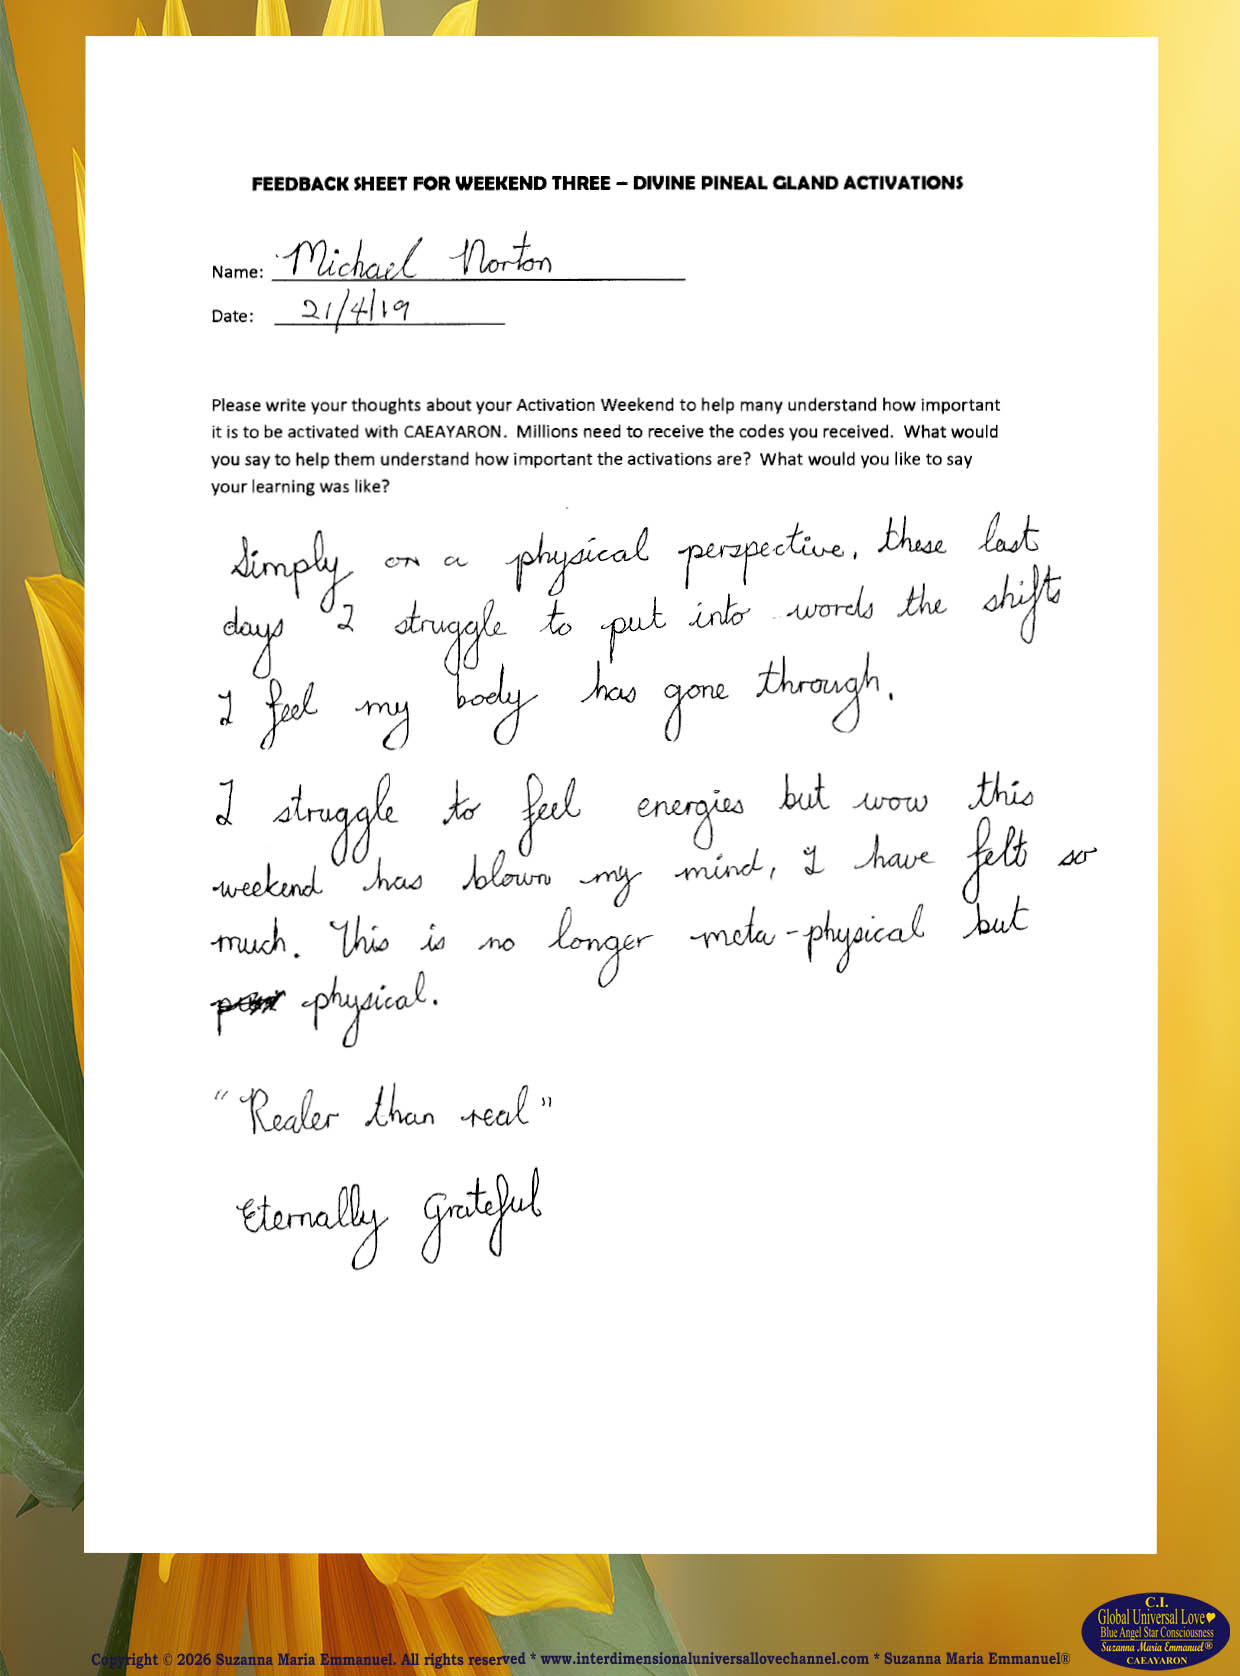 FEEDBACK SHEET FOR WEEKEND THREE – DIVINE PINEAL GLAND ACTIVATIONS
Name: Michael Norton
Date: 21/4/19
Please write your thoughts about your Activation Weekend to help many understand how important
it is to be activated with CAEAYARON. Millions need to receive the codes you received. What would
you say to help them understand how important the activations are? What would you like to say
your learning was like?
Simply on a physical perspective, these last
days I struggle to put into words the shifts
I feel my body has gone through.
I struggle to feel energies but wow this
weekend has blown my mind, I have felt so
much. This is no longer meta-physical but
physical.
"Realer than real"
Eternally Grateful
C.I.
Global Universal Love
Blue Angel Star Consciousness
Suzanna Maria Emmanuel®
CAEAYARON
Copyright © 2026 Suzanna Maria Emmanuel. All rights reserved * www.interdimensionaluniversallovechannel.com * Suzanna Maria Emmanuel®